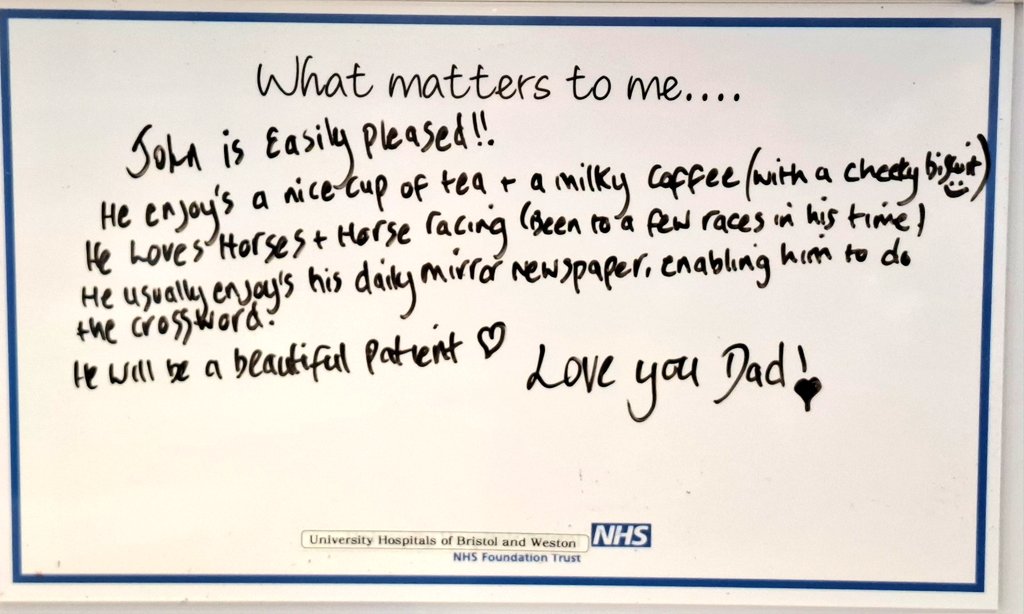 What matters to me....
John is Easily pleased!!.
He enjoy's a nice cup of tea + a milky coffee (with a cheeky biscuit)
He Loves Horses + Horse racing (Been to a few races in his time)
He usually enjoy's his daily mirror newspaper, enabling him to do
the crossword.
He will be a beautiful patient ♡
Love you Dad!
University Hospitals of Bristol and Weston
NHS
NHS Foundation Trust